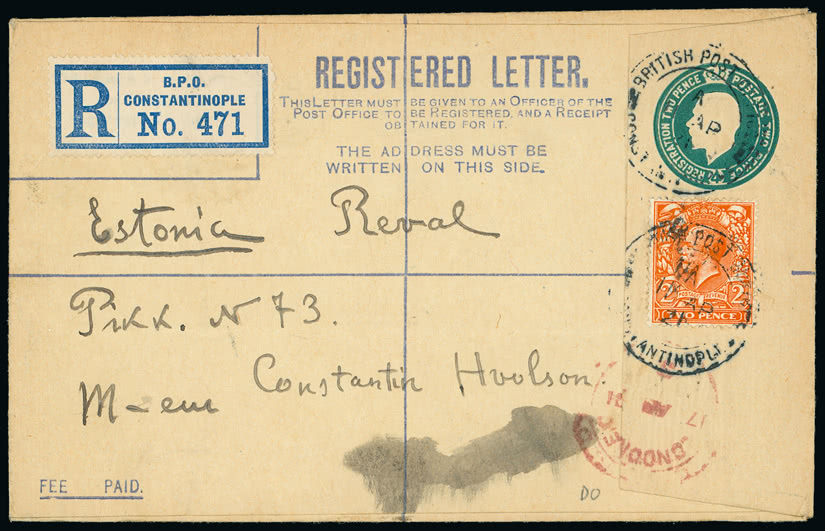 R
B.P.O.
CONSTANTINOPLE
No. 471
REGISTERED LETTER.
THIS LETTER MUST BE GIVEN TO AN OFFICER OF THE
POST OFFICE TO BE REGISTERED, AND A RECEIPT
OBTAINED FOR IT.
THE ADDRESS MUST BE
WRITTEN ON THIS SIDE.
BRITISH POST
AP
REGISTRATION TWO PENCE
POSTAGE TWO PENCE
Estonia Reval
POST
AP
21
ANTINOPLE
POSTAGE REVENUE
2 2
TWO PENCE
Pikk. N 73.
Constantin
M-eur
17
FEE PAID.
DO